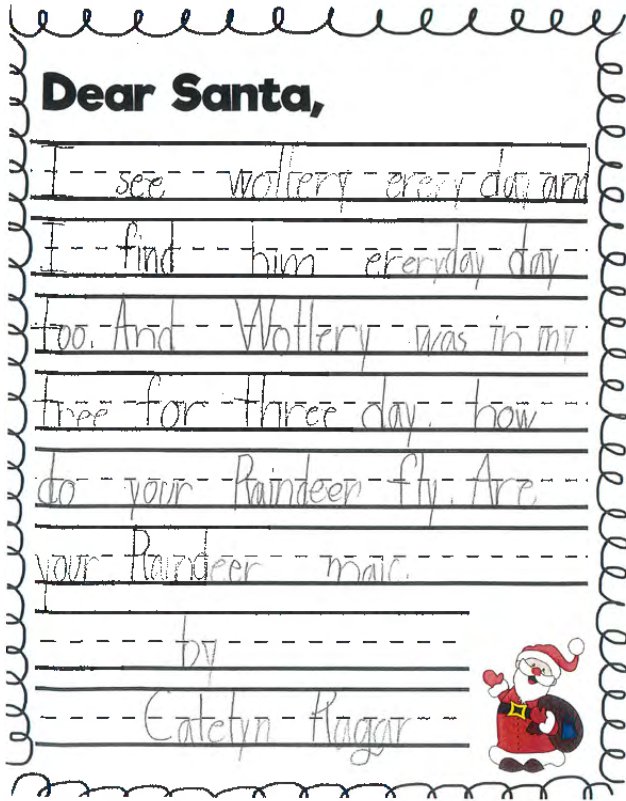 Dear Santa,
I see wollery every day and
I find him everyday day
too. And Wollery was in my
tree for three day. how
do your Raindeer fly. Are
your Raindeer maic.
by
Catelyn Ragar